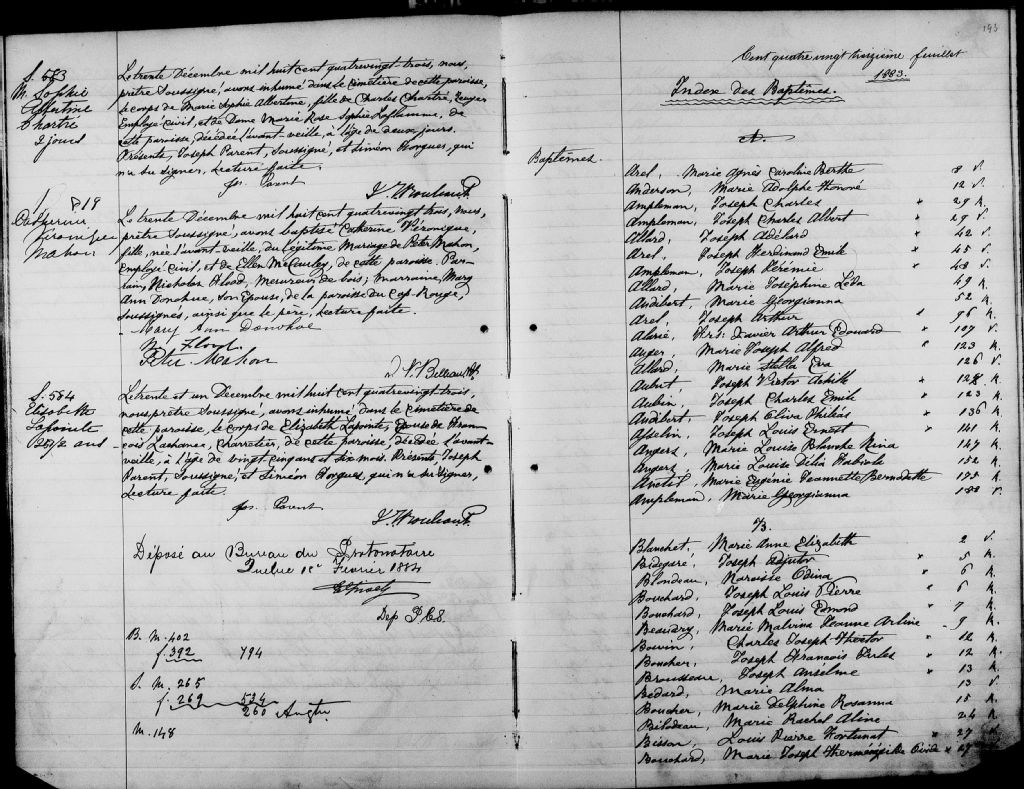 S. 583
M. Sophie
Albertine
Chartré
2 jours
Le trente Décembre mil huit cent quatrevingt-trois, nous,
prêtre soussigné, avons inhumé dans le cimetière de cette paroisse,
le corps de Marie Sophie Albertine, fille de Charles Chartré,
Employé civil, et de Dame Marie Rose Sophie Laflamme, de
cette paroisse, décédée l'avant-veille, à l'âge de deux jours.
Présents, Joseph Parent, soussigné, et Siméon Hongues, qui
n'a su signer. Lecture faite.
Jos. Parent
818
Catherine
Véronique
Mahon
Le trente Décembre mil huit cent quatrevingt trois, nous,
prêtre soussigné, avons baptisé Catherine Véronique,
fille, née l'avant veille, du légitime mariage de Peter Mahon,
Employé civil, et de Ellen McCauley, de cette paroisse. Par-
rain, Nicholas Flood, mesureur de bois; marraine, Mary
Ann Donohue, son épouse, de la paroisse du Cap-Rouge,
soussignés, ainsi que le père. Lecture faite.
Mary Ann Donohoe
N. Flood
Peter Mahon
S. 584
Elisabeth
Lapointe
25 1/2 ans
Le trente et un Décembre mil huit cent quatrevingt trois,
nous prêtre soussigné, avons inhumé dans le cimetière de
cette paroisse, le corps de Elizabeth Lapointe, Epouse de Fran-
cois Lachance, charretier, de cette paroisse, décédée l'avant-
veille, à l'âge de vingt cinq ans et dix mois. Présents Joseph
Parent, soussigné, et Siméon Hongues, qui n'a su signer.
Lecture faite.
Jos. Parent
Déposé au Bureau du Protonotaire
Québec 1er Février 1884
Dep P.C.S.
B. M. 402
f. 392 794
S. M. 265
f. 269 534
M. 148
193
Cent quatre vingt treizième feuillet
1883.
Index des Baptêmes.
A.
Baptêmes.
Arel, Marie Agnès Caroline Berthe 8 V.
Anderson, Marie Adolphe Honoré 12 V.
Ampleman, Joseph Charles " 29 R.
Ampleman, Joseph Charles Albert " 29 V.
Allard, Joseph Adélard " 42 V.
Arel, Joseph Ferdinand Emile " 45 V.
Ampleman, Joseph Jérémie " 48 V.
Allard, Marie Joséphine Léda 49 R.
Audibert, Marie Georgianna 52 R.
Arel, Joseph Arthur " 96 R.
Alarie, Frs: Xavier Arthur Edouard " 107 V.
Auger, Marie Joseph Alfred " 123 R.
Allard, Marie Stella Eva 126 V.
Aubert, Joseph Victor Achille " 128 R.
Aubin, Joseph Charles Emile " 123 R.
Audibert, Joseph Oliva Philéas " 136 R.
Asselin, Joseph Louis Ernest " 141 R.
Angers, Marie Louise Blanche Nina 147 R.
Angers, Marie Louise Délia Fabiola 152 R.
Anctil, Marie Eugénie Jeannette Bernadette 175 R.
Ampleman, Marie Georgianna 188 V.
B.
Blanchet, Marie Anne Elizabeth 2 V.
Bidégaré, Joseph Adjutor " 5 R.
Blondeau, Narcisse Odina " 6 R.
Bouchard, Joseph Louis Pierre " 6 R.
Bouchard, Joseph Louis Edmond " 7 R.
Beaudry, Marie Malvina Jeanne Arline 9 R.
Boivin, Charles Joseph Hector " 12 R.
Boucher, Joseph François Jules " 12 R.
Brousseau, Joseph Anselme " 13 R.
Bedard, Marie Alma 13 V.
Boucher, Marie Delphine Rosanna 15 R.
Bilodeau, Marie Rachel Aline 24 R.
Bisson, Louis Pierre Fortunat " 27 R.
Bouchard, Marie Joseph